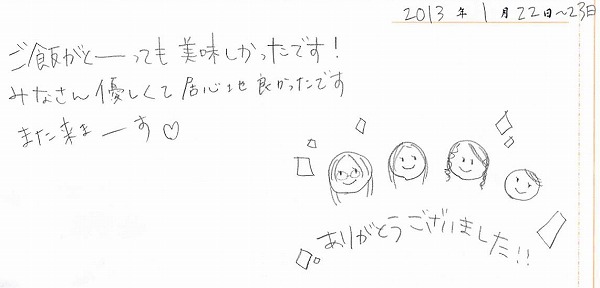 2013 年 1 月 22日〜23日
ご飯がとーっても美味しかったです！
みなさん優しくて居心地良かったです
また来まーす♡
ありがとうございました!!